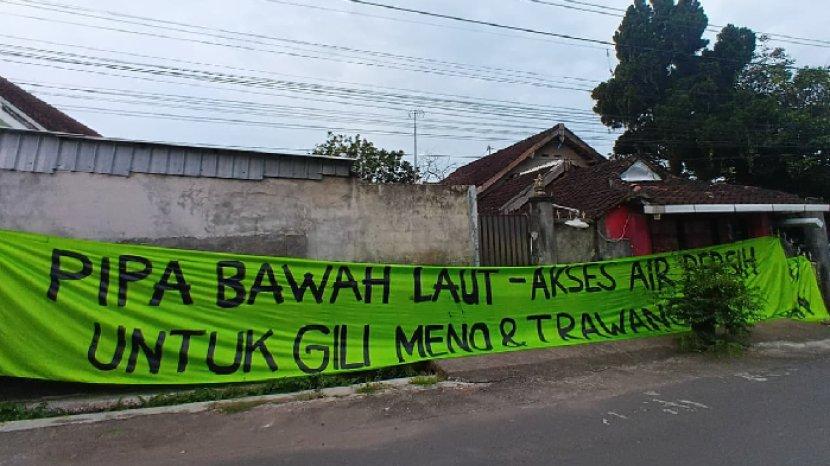 PIPA BAWAH LAUT - AKSES AIR BERSIH
UNTUK GILI MENO & TRAWANGAN